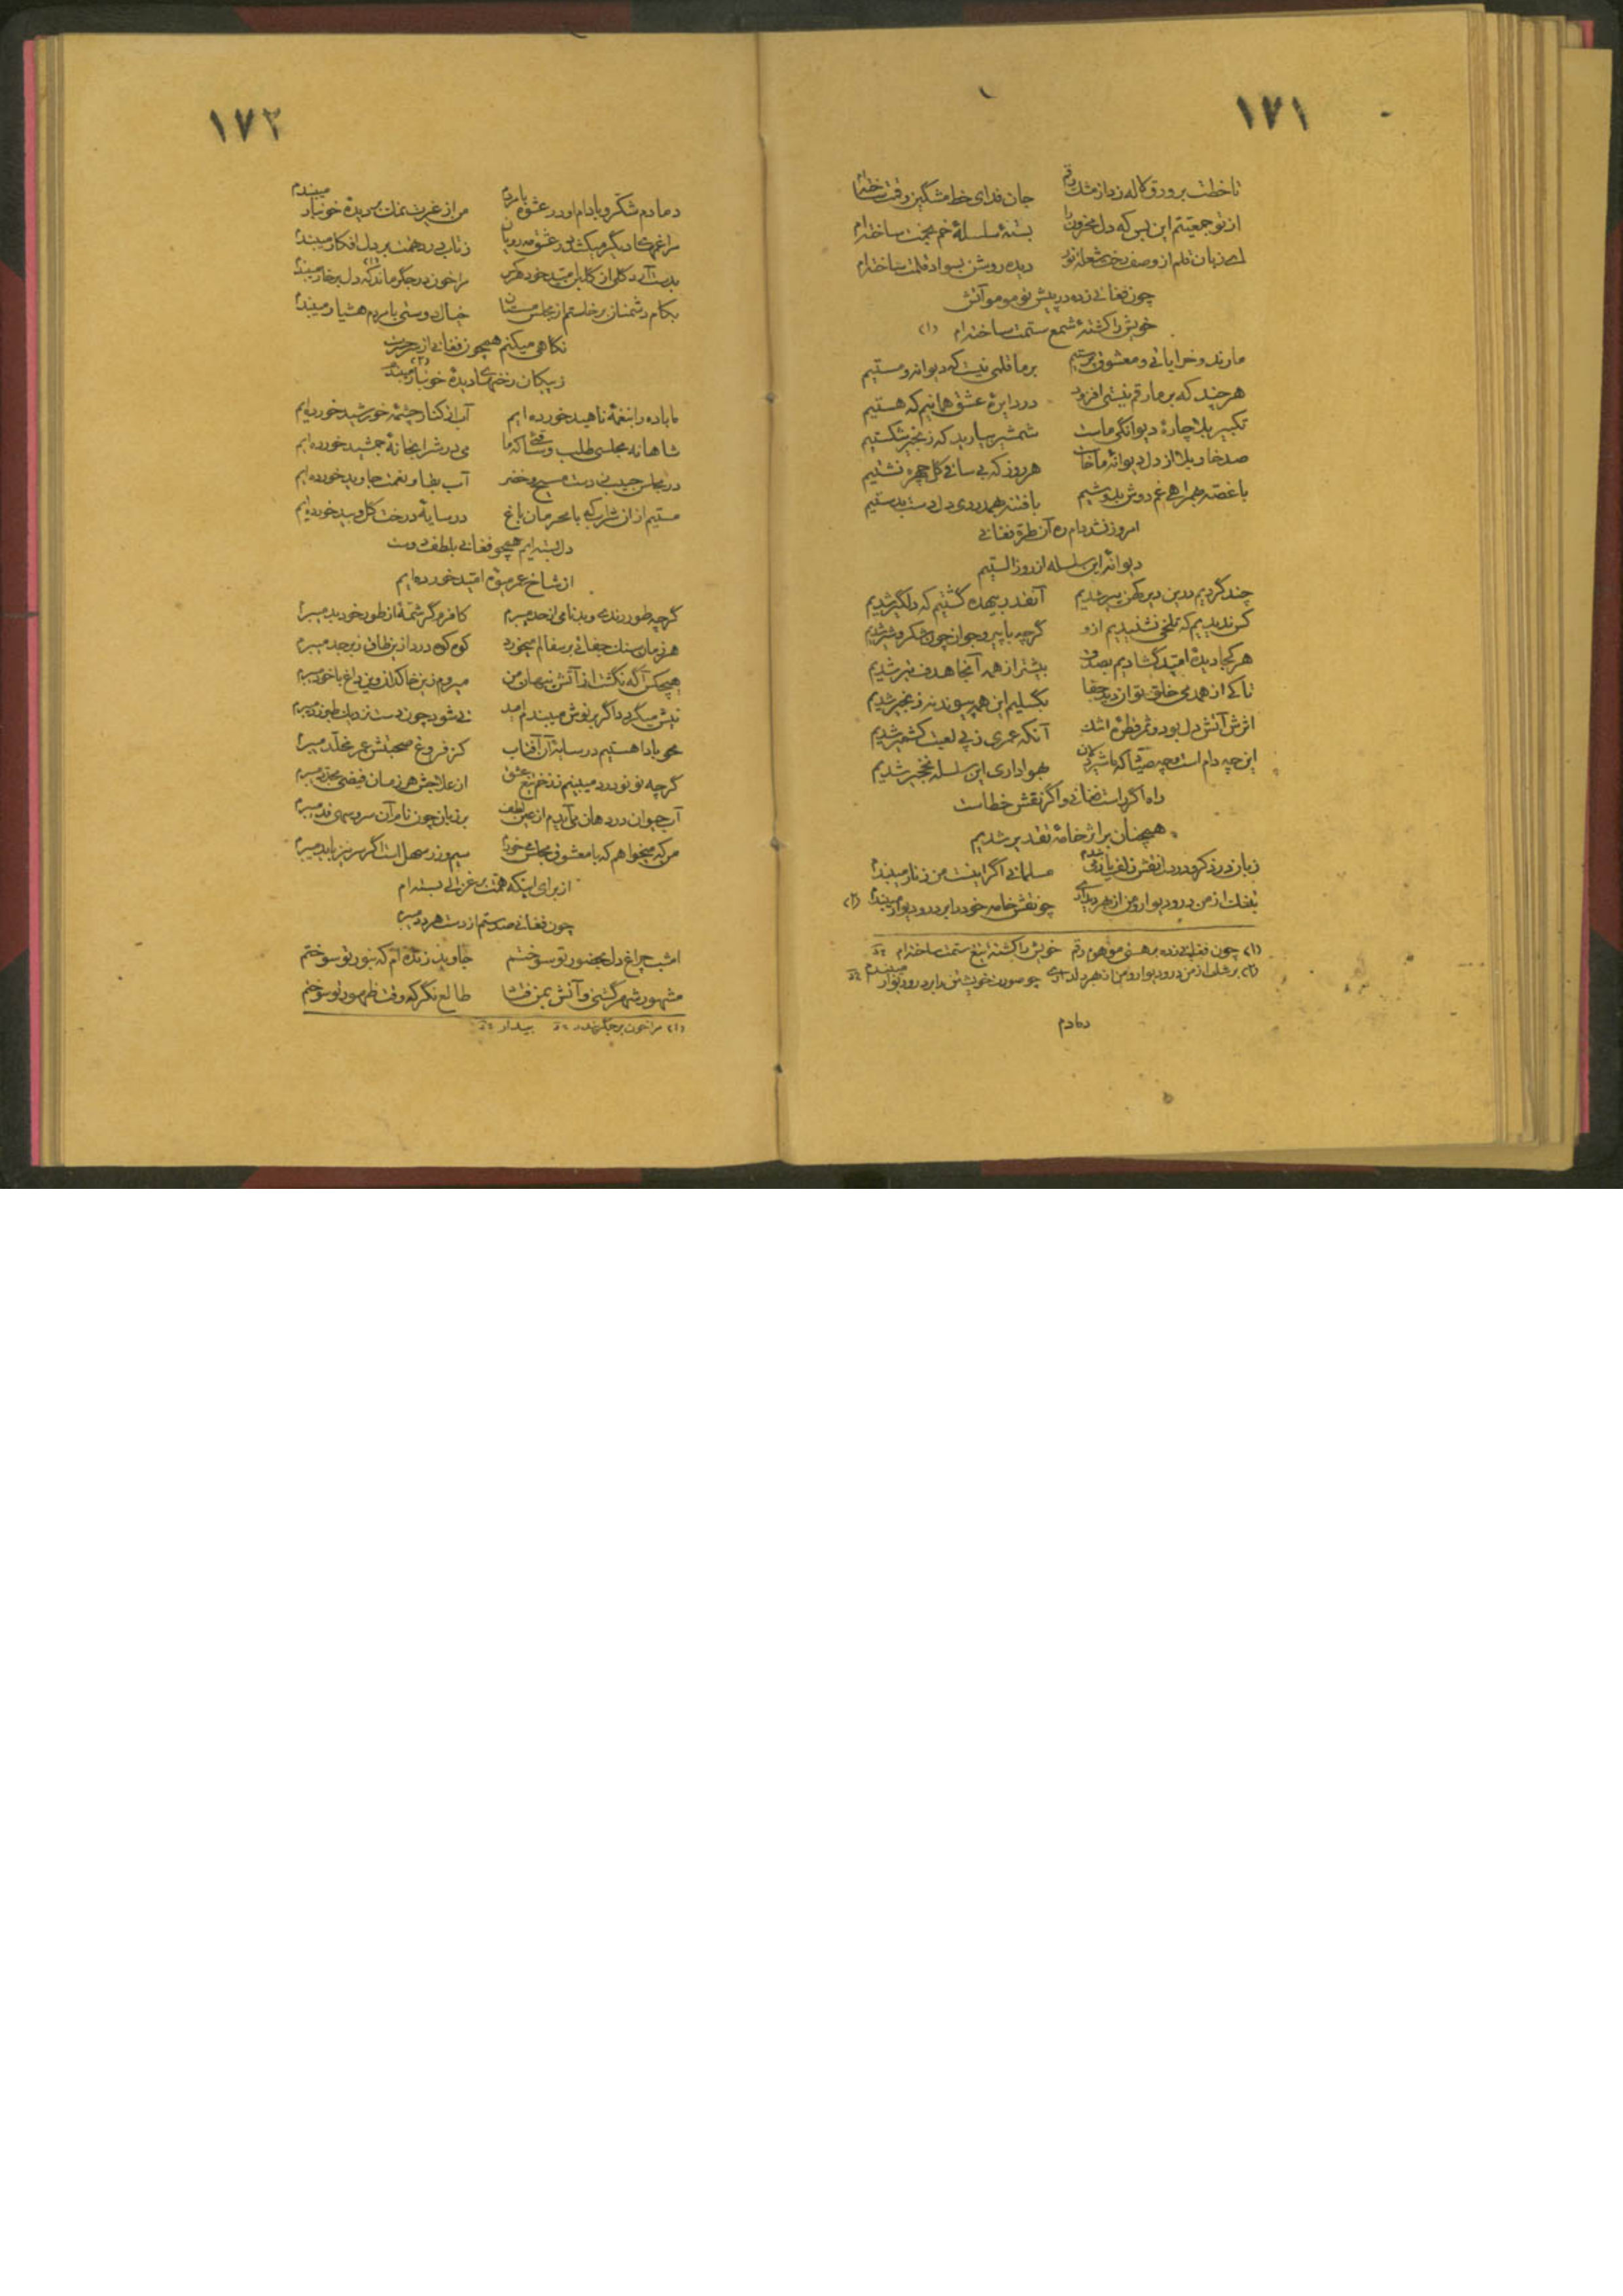 ١٧١
تا خطت بر ورق لاله زد از مشک رقم جان فدای خط مشگین رقمت ساخته‌ام
از تو جمعیتم این بس که دل محزون را بستهٔ سلسلهٔ خم بخمت ساخته‌ام
زبان قلم از وصف رخت شعلهٔ نور دیده روشن بسواد قلمت ساخته‌ام
چون فغانی زده در پیش تو مو مو آتش
خویش را کشتهٔ شمع ستمت ساخته‌ام (١)
ما رند و خراباتی و معشوق پرستیم بر ما قلمی نیست که دیوانه و مستیم
هر چند که بر ما رقم نیستی افزود در دایرهٔ عشق همانیم که هستیم
تکبیر بلا چارهٔ دیوانگی ماست شمشیر بیارید که زنجیر شکستیم
صد خار بلا از دل دیوانهٔ ما خاست هر روز که بی ساقی گل چهره نشستیم
با غصه همراهی غم دوش بدوشیم با فتنه همدردی دل دست بدستیم
امروز نشد دام ره آن طره فغانی
دیوانهٔ این سلسله از روز الستیم
چند گردیم درین دیر کهن پیر شدیم آنقدر بیهده گشتیم که دلگیر شدیم
کس ندیدیم که تلخی نشنیدیم ازو گرچه با پیر و جوان چون شکر و شیر شدیم
هر کجا دیدهٔ امید گشادیم بصدق بیشتر از همه آنجا هدف تیر شدیم
تا کی از همدمی خلق توان دید جفا بگسلیم این همه پیوند نه زنجیر شدیم
اثرش آتش دل بود و ثمر قطرهٔ اشک آنکه عمری ز پی لعبت کشمیر شدیم
این چه دام است و چه صیاد که ما شیردلان بهواداری این سلسله نخجیر شدیم
راه اگر راست فغانی و اگر نقش خطاست
همچنان بر اثر خامهٔ تقدیر شدیم
زبان در ذکر و در دل نقش زلف یار می‌بندم مسلمانی اگر اینست من زنار میبندم
بتنگست از من در و دیوار و من از هر چو نقش خامه خود را بر در و دیوار میبندم (٢)
(١) چون فغانی زده بر هستی موهوم رقم خویش را کشتهٔ تیغ ستمت ساخته‌ام
(٢) از من در و دیوار و من از هر چو صورت خویشتن را بر در و دیوار میبندم
دمادم
١٧٢
دمادم شکر و بادام او در عشوه با مردم من از غیرت نمک بر دیدهٔ خونبار میبندم
مرا غمهای دیگر میکشد در عشق مه رویان زتاب درد تهمت بر دل افکار میبندم
بدست آرد گلی از گلبن امید خود هر کس مرا خون در جگر ماند که دل بر خار میبندم
بکام دشمنان برخاستم از مجلس مستان خیال دوستی با مردم هشیار میبندم
نگاهی میکنم همچون فغانی از سر حسرت
ز پیکان رخنهای دیدهٔ خونبار میبندم
ما باده را بنغمهٔ ناهید خورده‌ایم آب از کنار چشمهٔ خورشید خورده‌ایم
شاهانه مجلسی طلب و ساقی‌ای که ما می در شرابخانهٔ جمشید خورده‌ایم
در مجلس حبیب ز دست مسیح و خضر آب بقا و نعمت جاوید خورده‌ایم
مستیم از آن شراب که با محرمان باغ در سایهٔ درخت گل و بید خورده‌ایم
دل بسته‌ایم همچو فغانی بلطف دوست
از شاخ عمر میوهٔ امید خورده‌ایم
گرچه طور رندی و بدنامی از حد میبرم کافرم گر شمه‌ای از طور خود بد میبرم
هر زمان سنگ جفائی بر سفالم میخورد کوه کوه درد ازین طاق زبرجد میبرم
هیچکس آگه نگشت از آتش پنهان من میروم زین خاکدان وین داغ با خود میبرم
نیش میگردد اگر بر نوش میبندم امید نی شود چون دست نزدیک طبرزد میبرم
محو بادا هستیم در سایهٔ آن آفتاب کز فروغ صحبتش عمر مخلد میبرم
گرچه نو نو درد میبینم ز زخم تیغ عشق از علاجش هر زمان فیض مجدد میبرم
آب حیوان در دهان می‌آیدم از عین لطف بر زبان چون نام آن سرو سهی قد میبرم
من که میخواهم که با معشوق مجلس خود سیم و زر سهل است اگر سر نیز باید میبرم
از برای اینکه همت بر غزالی بسته‌ام
چون فغانی صد ستم از دست هر دد میبرم
امشب چراغ دل بحضور تو سوختم جاوید زنده‌ام که بنور تو سوختم
مشهور شهر گشتی و آتش بمن فتاد طالع نگر که وقت ظهور تو سوختم
(١) مرا خون بر جگر بیدار